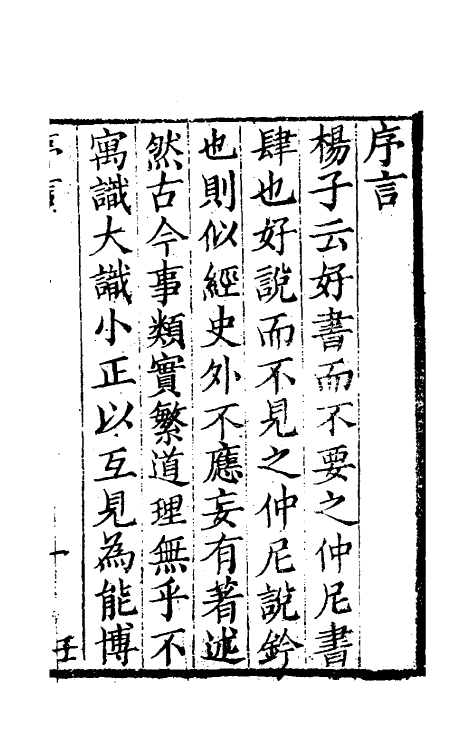 序言
楊子云好書而不要之仲尼書
肆也好說而不見之仲尼說鈴
也則似經史外不應妄有著述
然古今事類實繁道理無乎不
寓識大識小正以互見為能博
序言
一